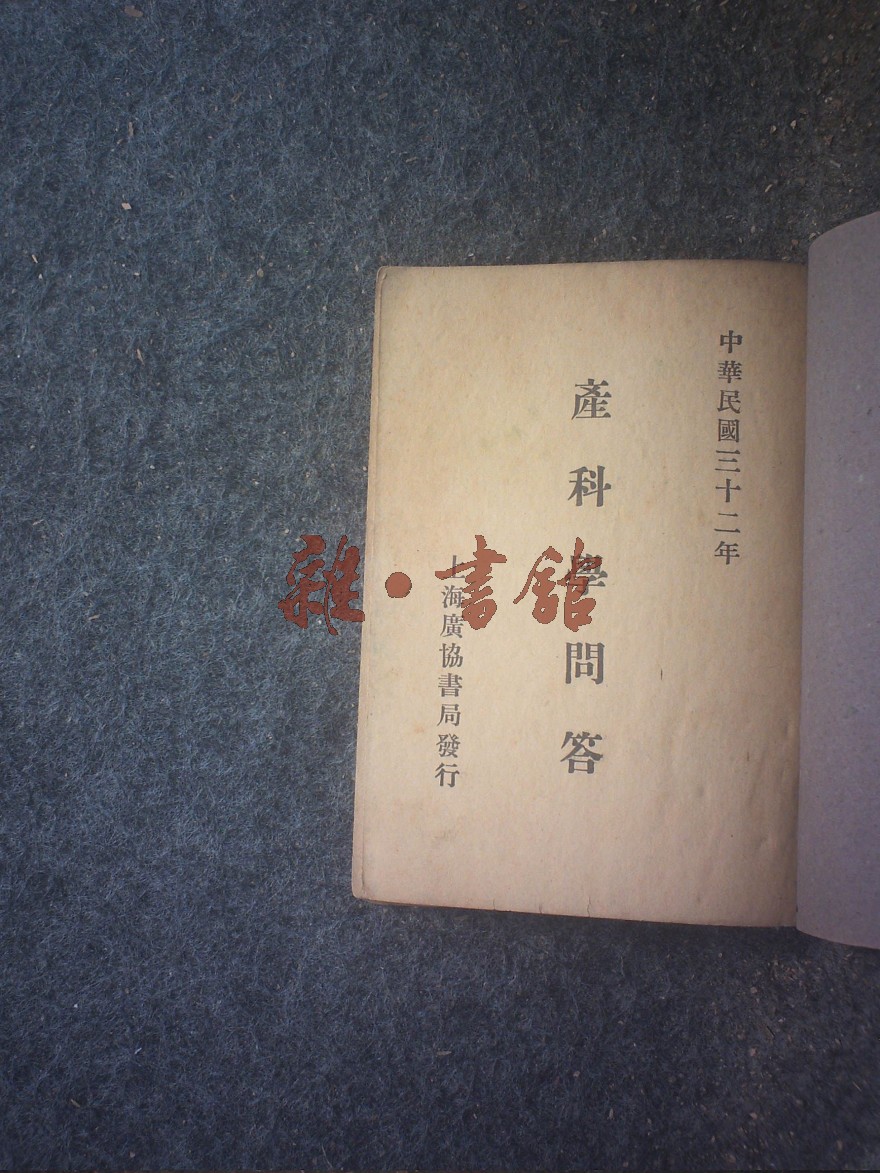 中華民國三十二年
產科學問答
上海廣協書局發行
雜·書館